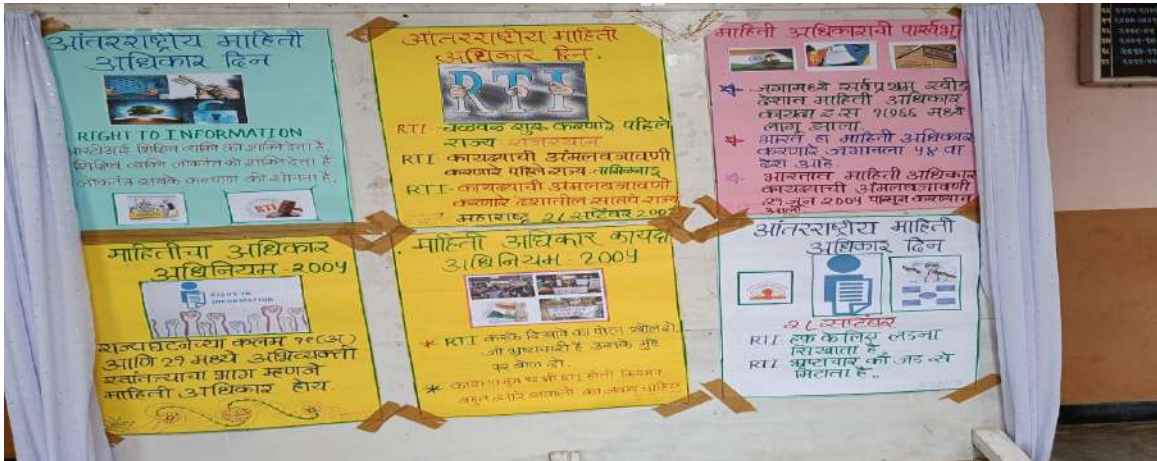 आंतरराष्ट्रीय माहिती
अधिकार दिन
RIGHT TO INFORMATION
आरटीआई शिक्षित व्यक्ति को शक्ति देता है
शिक्षित व्यक्ति लोकतंत्र को शक्ति देता है
लोकतंत्र सबके कल्याण की सोचता है.
RTI
आंतरराष्ट्रीय माहिती
अधिकार दिन.
RTI
RTI - चळवळ सुरू करणारे पहिले
राज्य राजस्थान
RTI - कायद्याची अंमलबजावणी
करणारे पहिले राज्य तामिळनाडू
RTI - कायद्याची अंमलबजावणी
करणारे देशातील सातवे राज्य
महाराष्ट्र २८ सप्टेंबर
माहिती अधिकाराची पार्श्वभू
जगामध्ये सर्वप्रथम स्वीड
देशात माहिती अधिकार
कायदा इ स १७६६ मध्ये
लागू झाला.
भारत हा माहिती अधिकार
करणारे जगातला ५४ वा
देश आहे.
भारतात माहिती अधिकार
कायद्याची अंमलबजावणी
जून २००५ पासून करण्यात
आली
माहितीचा अधिकार
अधिनियम - २००५
RIGHT TO
INFORMATION
राज्यघटनेच्या कलम १९(अ)
आणि २१ मध्ये अभिव्यक्ती
स्वातंत्र्याचा भाग म्हणजे
माहिती अधिकार होय
माहिती अधिकार कायदा
अधिनियम - २००५
* RTI करके दिखावे का पोल खोल दो.
जो भ्रष्टाचारी है उसके मुँह
पर बोल दो.
आंतरराष्ट्रीय माहिती
अधिकार दिन
२८ सप्टेंबर
RTI हक के लिए लडना
सिखाता है
RTI भ्रष्टाचार को जड से
मिटाता है..